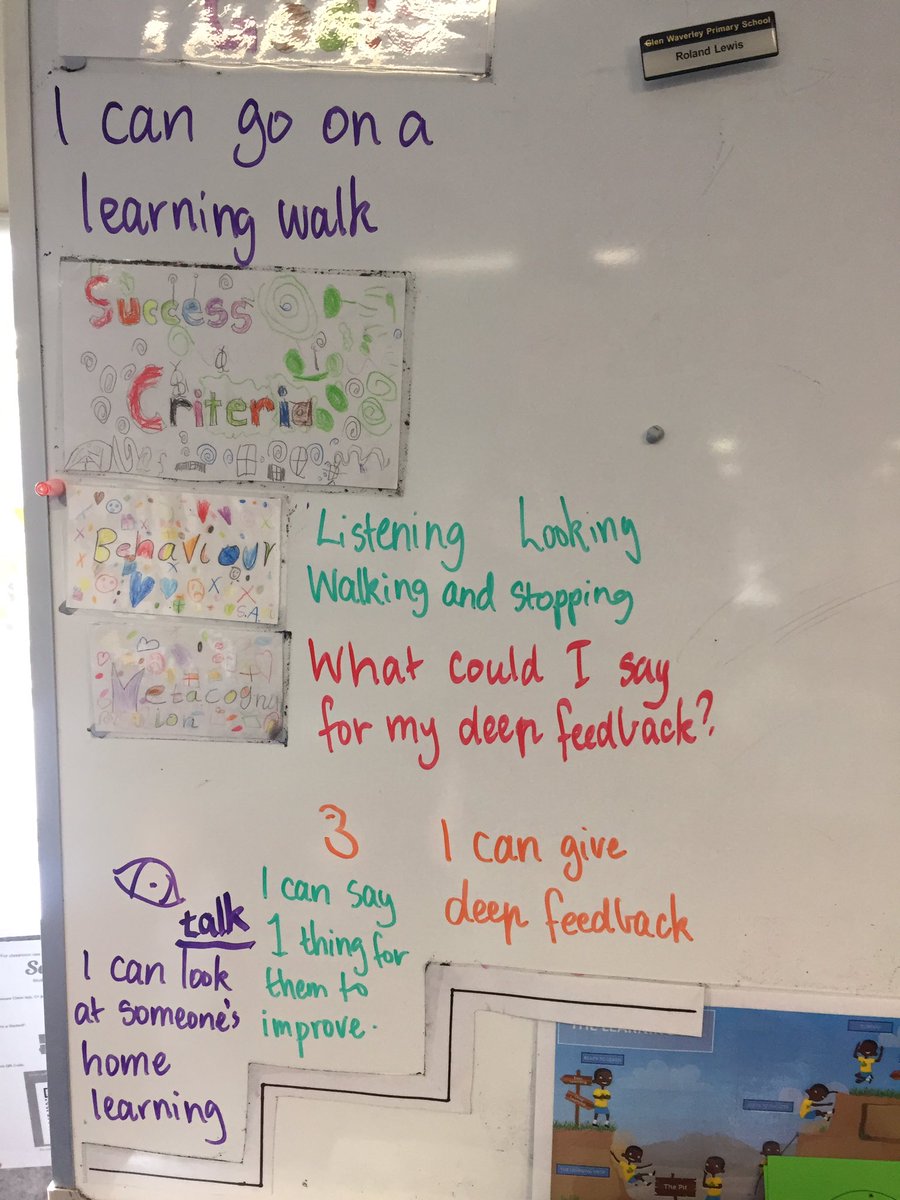 Goal!
Glen Waverley Primary School
Roland Lewis
I can go on a
learning walk
Success
Criteria
Behaviour
S.A.i
Listening Looking
Walking and stopping
Metacogni
tion
What could I say
for my deep feedback?
3
I can give
deep feedback
I can say
1 thing for
them to
improve.
talk
I can look
at someone's
home
learning
THE LEARNIN
READY TO LEARN
The Pit